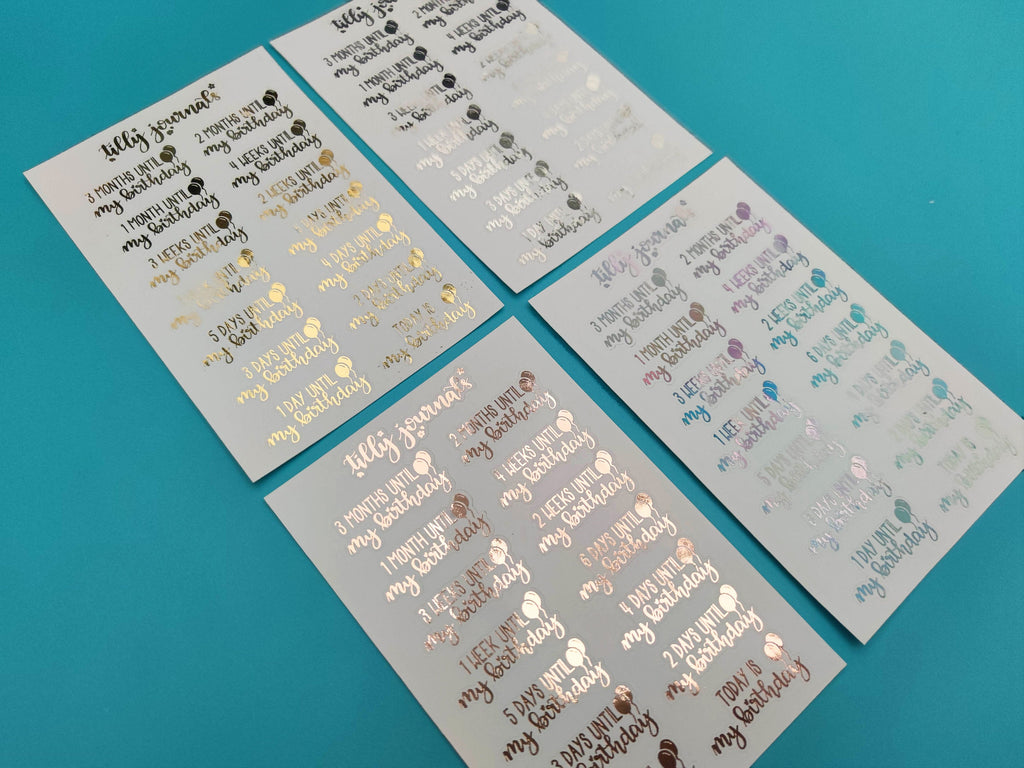 tilly journals
3 MONTHS UNTIL
my birthday
1 MONTH UNTIL
my birthday
3 WEEKS UNTIL
my birthday
UNTIL
my birthday
5 DAYS UNTIL
my birthday
3 DAYS UNTIL
my birthday
1 DAY UNTIL
my birthday
2 MONTHS UNTIL
my birthday
4 WEEKS UNTIL
my birthday
2 WEEKS UNTIL
my birthday
DAYS UNTIL
my birthday
4 DAYS UNTIL
my birthday
2 DAYS UNTIL
my birthday
TODAY IS
my birthday
tilly journals
3 MONTHS UNTIL
my birthday
1 MONTH UNTIL
my birthday
3 WEEKS UNTIL
my birthday
1 WEEK UNTIL
my birthday
5 DAYS UNTIL
my birthday
3 DAYS UNTIL
my birthday
1 DAY UNTIL
my birthday
2 MONTHS
my birthday
4 WEEKS UNTIL
my birthday
2 WEEKS UNTIL
my birthday
tilly journals
3 MONTHS UNTIL
my birthday
1 MONTH UNTIL
my birthday
3 WEEKS UNTIL
my birthday
1 WEEK UNTIL
my birthday
5 DAYS UNTIL
my birthday
3 DAYS UNTIL
my birthday
1 DAY UNTIL
my birthday
2 MONTHS UNTIL
my birthday
4 WEEKS UNTIL
my birthday
2 WEEKS UNTIL
my birthday
6 DAYS UNTIL
my birthday
4 DAYS UNTIL
my birthday
2 DAYS UNTIL
my birthday
TODAY IS
my birthday
tilly journals
3 MONTHS UNTIL
my birthday
1 MONTH UNTIL
my birthday
3 WEEKS UNTIL
my birthday
1 WEEK UNTIL
my birthday
5 DAYS UNTIL
my birthday
3 DAYS UNTIL
my birthday
2 MONTHS UNTIL
my birthday
4 WEEKS UNTIL
my birthday
2 WEEKS UNTIL
my birthday
6 DAYS UNTIL
my birthday
4 DAYS UNTIL
my birthday
2 DAYS UNTIL
my birthday
TODAY IS
my birthday